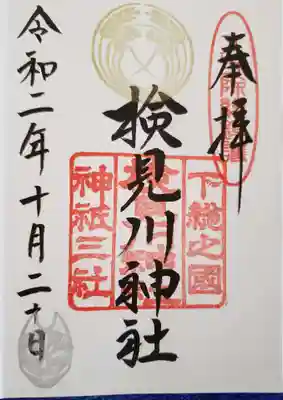 奉拝
検見川神社
下総之國
神祇三社
令和二年十月二十日